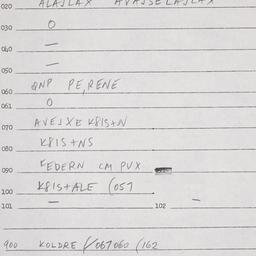 020 ALAJLAX AVAJSELAJLAX
030 O
040 —
050 —
060 QNP PE,RENE
061 O
070 AVEJXE K8IS+N
080 K8IS+NS
090 FEDERN CM PUX
100 K8IS+ALE (051
101 — 102 —
900 KOLDRE (067060 (162